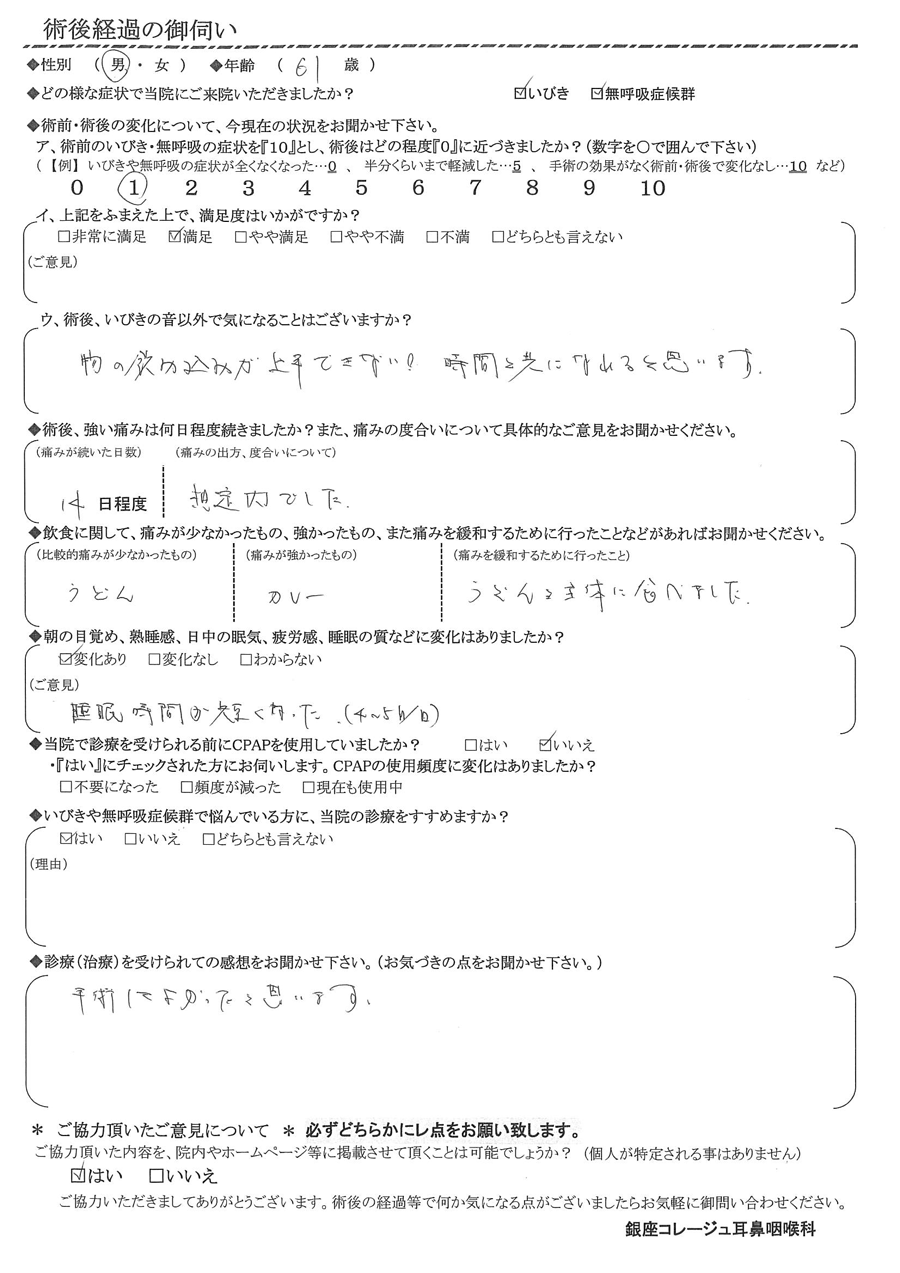 術後経過の御伺い
◆性別 （ 男 ・ 女 ） ◆年齢 （ 61 歳 ）
◆どの様な症状で当院にご来院いただきましたか？ ☑いびき ☑無呼吸症候群
◆術前・術後の変化について、今現在の状況をお聞かせ下さい。
ア、術前のいびき・無呼吸の症状を『10』とし、術後はどの程度『0』に近づきましたか？（数字を〇で囲んで下さい）
（【例】 いびきや無呼吸の症状が全くなくなった…0 、 半分くらいまで軽減した…5 、 手術の効果がなく術前・術後で変化なし…10 など）
0 1 2 3 4 5 6 7 8 9 10
イ、上記をふまえた上で、満足度はいかがですか？
□非常に満足 ☑満足 □やや満足 □やや不満 □不満 □どちらとも言えない
（ご意見）
ウ、術後、いびきの音以外で気になることはございますか？
物の飲み込みが上手できない！ 時間と共になれると思います.
◆術後、強い痛みは何日程度続きましたか？また、痛みの度合いについて具体的なご意見をお聞かせください。
（痛みが続いた日数） （痛みの出方、度合いについて）
14 日程度 想定内でした.
◆飲食に関して、痛みが少なかったもの、強かったもの、また痛みを緩和するために行ったことなどがあればお聞かせください。
（比較的痛みが少なかったもの） （痛みが強かったもの） （痛みを緩和するために行ったこと）
うどん カレー うどんを主体に食べました.
◆朝の目覚め、熟睡感、日中の眠気、疲労感、睡眠の質などに変化はありましたか？
☑変化あり □変化なし □わからない
（ご意見）
睡眠時間が短くなった.(4〜5H/日)
◆当院で診療を受けられる前にCPAPを使用していましたか？ □はい ☑いいえ
・『はい』にチェックされた方にお伺いします。CPAPの使用頻度に変化はありましたか？
□不要になった □頻度が減った □現在も使用中
◆いびきや無呼吸症候群で悩んでいる方に、当院の診療をすすめますか？
☑はい □いいえ □どちらとも言えない
（理由）
◆診療（治療）を受けられての感想をお聞かせ下さい。（お気づきの点をお聞かせ下さい。）
手術してよかったと思います.
＊ ご協力頂いたご意見について ＊ 必ずどちらかにレ点をお願い致します。
ご協力頂いた内容を、院内やホームページ等に掲載させて頂くことは可能でしょうか？ （個人が特定される事はありません）
☑はい □いいえ
ご協力いただきましてありがとうございます。術後の経過等で何か気になる点がございましたらお気軽に御問い合わせください。
銀座コレージュ耳鼻咽喉科